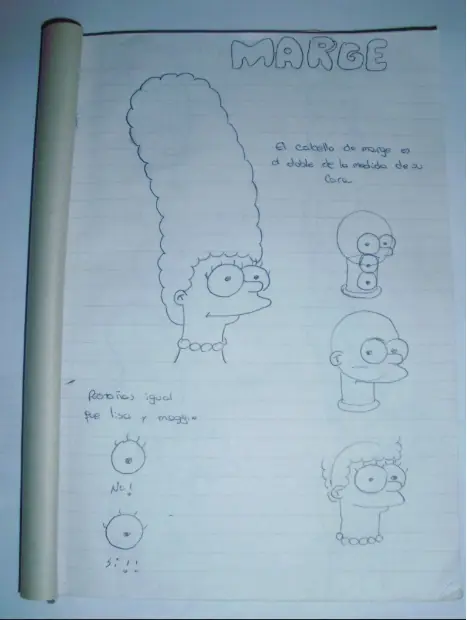 MARGE
El cabello de marge es
el doble de la medida de su
Cara
Pestañas igual
que lisa y maggie
No!
Si!!